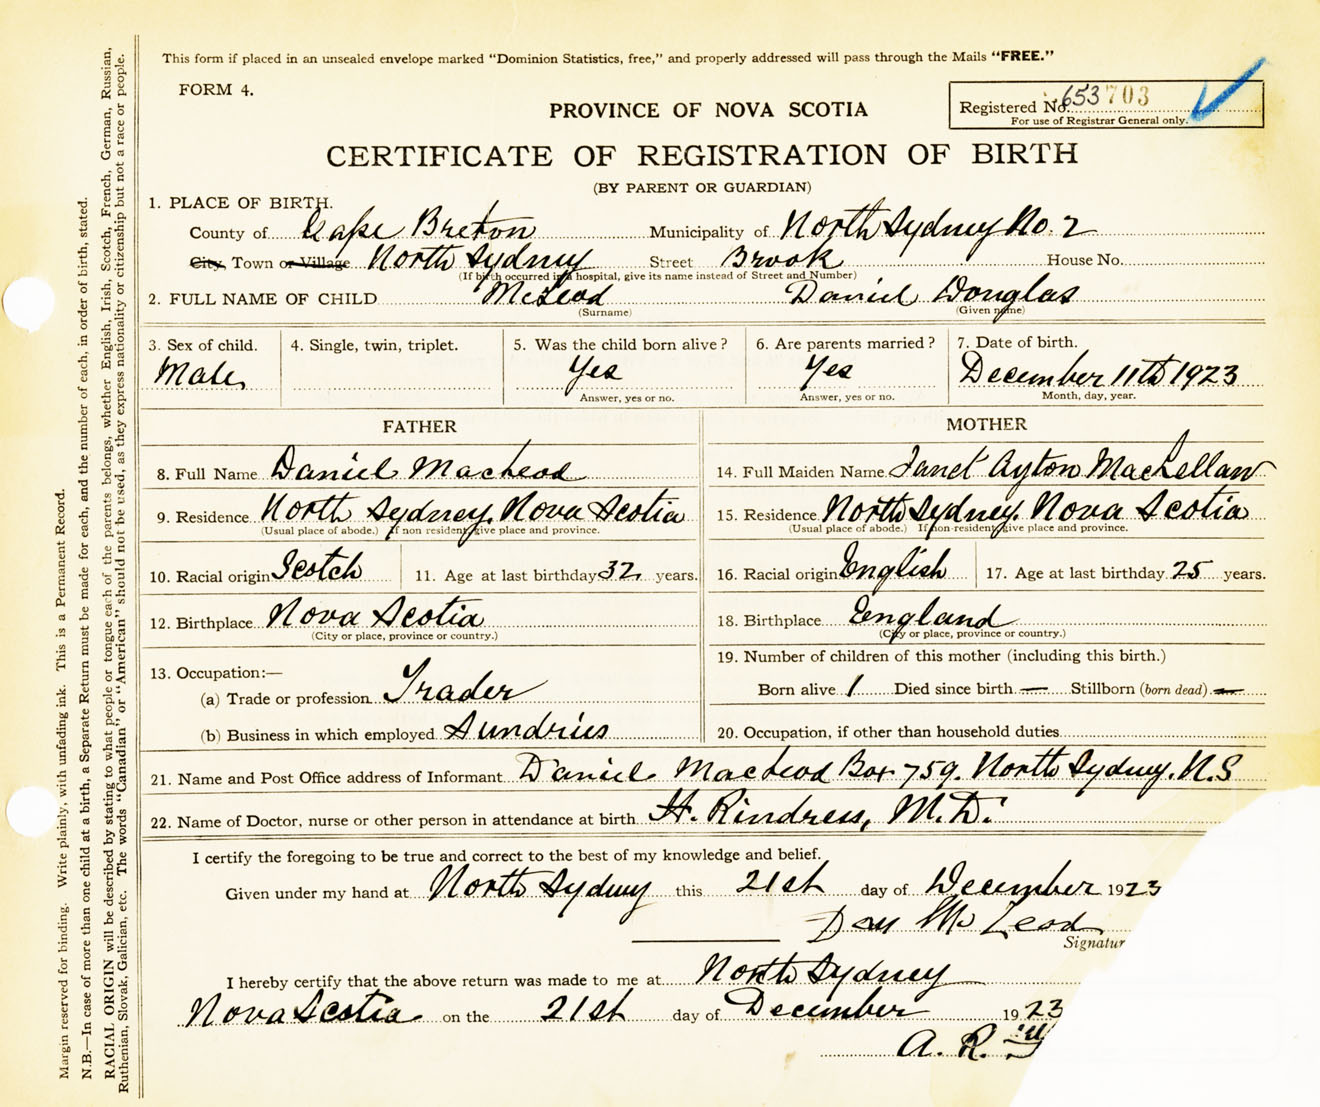 This form if placed in an unsealed envelope marked "Dominion Statistics, free," and properly addressed will pass through the Mails "FREE."
FORM 4.
PROVINCE OF NOVA SCOTIA
Registered No. 653703
For use of Registrar General only.
CERTIFICATE OF REGISTRATION OF BIRTH
(BY PARENT OR GUARDIAN)
1. PLACE OF BIRTH.
County of Cape Breton Municipality of North Sydney No. 2
City, Town or Village North Sydney Street Brook House No.
(If birth occurred in a hospital, give its name instead of Street and Number)
2. FULL NAME OF CHILD McLeod Daniel Douglas
(Surname) (Given name)
3. Sex of child. 4. Single, twin, triplet. 5. Was the child born alive? 6. Are parents married? 7. Date of birth.
Male Yes Yes December 11th 1923
Answer, yes or no. Answer, yes or no. Month, day, year.
FATHER MOTHER
8. Full Name Daniel MacLeod 14. Full Maiden Name Janet Ayton MacLellan
9. Residence North Sydney, Nova Scotia 15. Residence North Sydney. Nova Scotia
(Usual place of abode.) If non resident, give place and province. (Usual place of abode.) If non-resident, give place and province.
10. Racial origin Scotch 11. Age at last birthday 32 years. 16. Racial origin English 17. Age at last birthday 25 years.
12. Birthplace Nova Scotia 18. Birthplace England
(City or place, province or country.) (City or place, province or country.)
13. Occupation:— 19. Number of children of this mother (including this birth.)
(a) Trade or profession Trader Born alive 1 Died since birth — Stillborn (born dead) —
(b) Business in which employed Sundries 20. Occupation, if other than household duties
21. Name and Post Office address of Informant Daniel MacLeod Box 759. North Sydney. N.S
22. Name of Doctor, nurse or other person in attendance at birth H. Rindress, M.D.
I certify the foregoing to be true and correct to the best of my knowledge and belief.
Given under my hand at North Sydney this 21st day of December 1923
Dan McLeod
Signatur
I hereby certify that the above return was made to me at North Sydney
Nova Scotia on the 21st day of December 1923
A. R.
Margin reserved for binding. Write plainly, with unfading ink. This is a Permanent Record.
N.B.—In case of more than one child at a birth, a Separate Return must be made for each, and the number of each, in order of birth, stated.
RACIAL ORIGIN will be described by stating to what people or tongue each of the parents belongs, whether English, Irish, Scotch, French, German, Russian,
Ruthenian, Slovak, Galician, etc. The words "Canadian" or "American" should not be used, as they express nationality or citizenship but not a race or people.